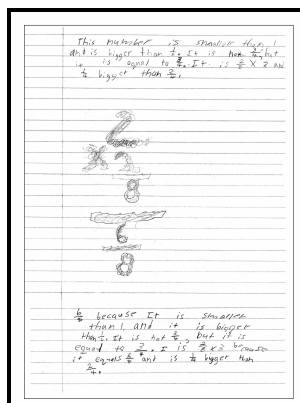 This number is smaller than
and is bigger than 1/2. It is not 3/4, but
it is equal to 3/4. It is 2/8 X 3 and
1/4 bigger than 2/4.
2
X 3
8
6
8
6/8 because It is smaller
than 1, and it is bigger
than 1/2. It is not 3/4, but it is
equal to 3/4. I is 2/8 x 3 because
it equals 6/8 and is 1/4 bigger than
2/4.